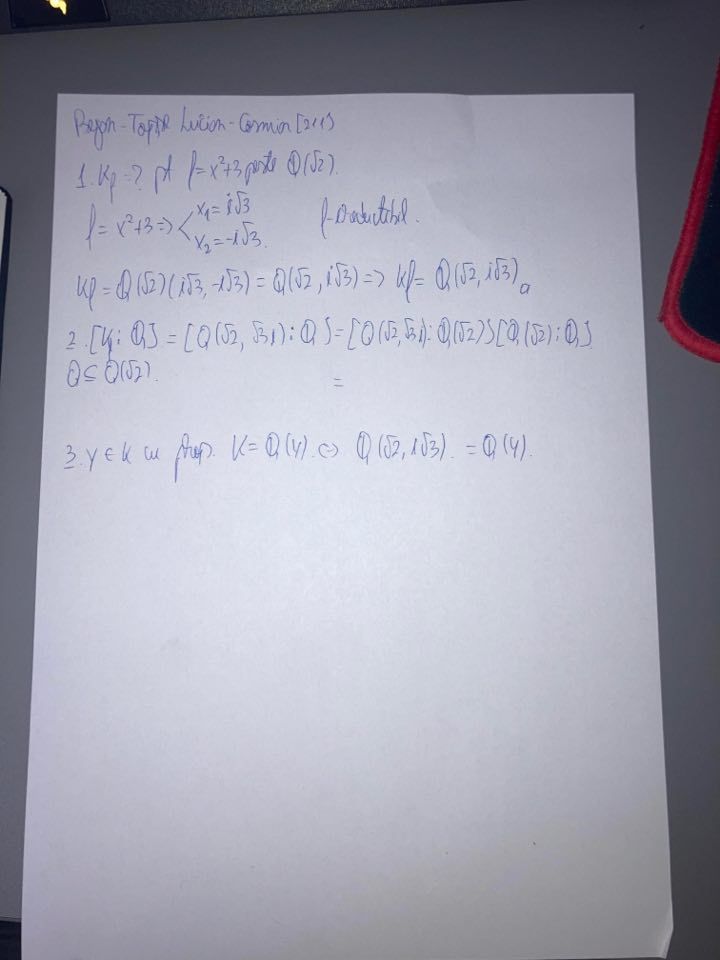 Lucian-Cosmin [211]
1. Kf = ? pt f = x²+3 peste Q(√2).
f = x²+3 => x₁ = i√3 f-ireductibil.
x₂ = -i√3.
Kf = Q(√2)(i√3, -i√3) = Q(√2, i√3) => Kf = Q(√2, i√3)
2. [Kf : Q] = [Q(√2, √3i) : Q] = [Q(√2, √3i) : Q(√2)][Q(√2) : Q]
Q ⊆ Q(√2). =
3. γ ∈ K cu prop. K = Q(γ) <=> Q(√2, i√3). = Q(γ).